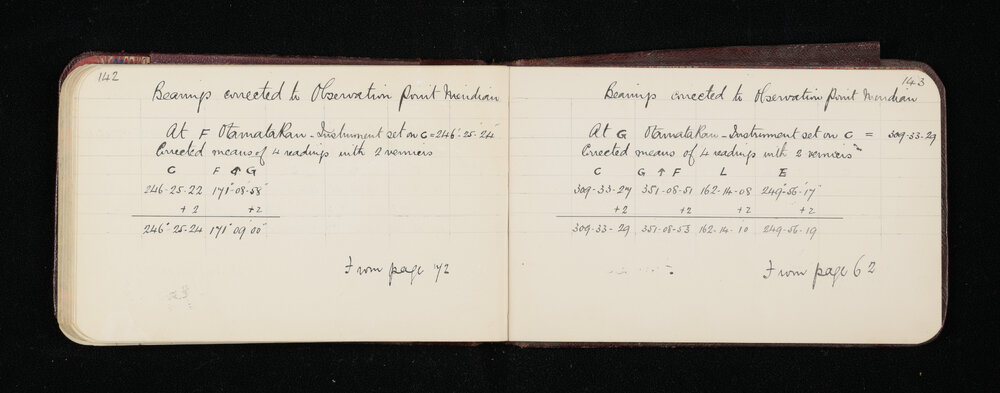 142
Bearings corrected to Observation Point Meridian
At F Otamatakau - Instrument set on C = 246°-25'-24"
Corrected means of 4 readings with 2 verniers
C F ↑ G
246-25-22 171°-08'-58"
+2 +2
246°-25'-24 171° 09' 00"
From page 72
143
Bearings corrected to Observation Point Meridian
At G Otamatakau - Instrument set on C = 309-33-29
Corrected means of 4 readings with 2 verniers
C G ↑ F L E
309-33-27 351-08-51 162-14-08 249°-56'-17"
+2 +2 +2 +2
309-33-29 351-08-53 162-14-10 249-56-19
From page 62